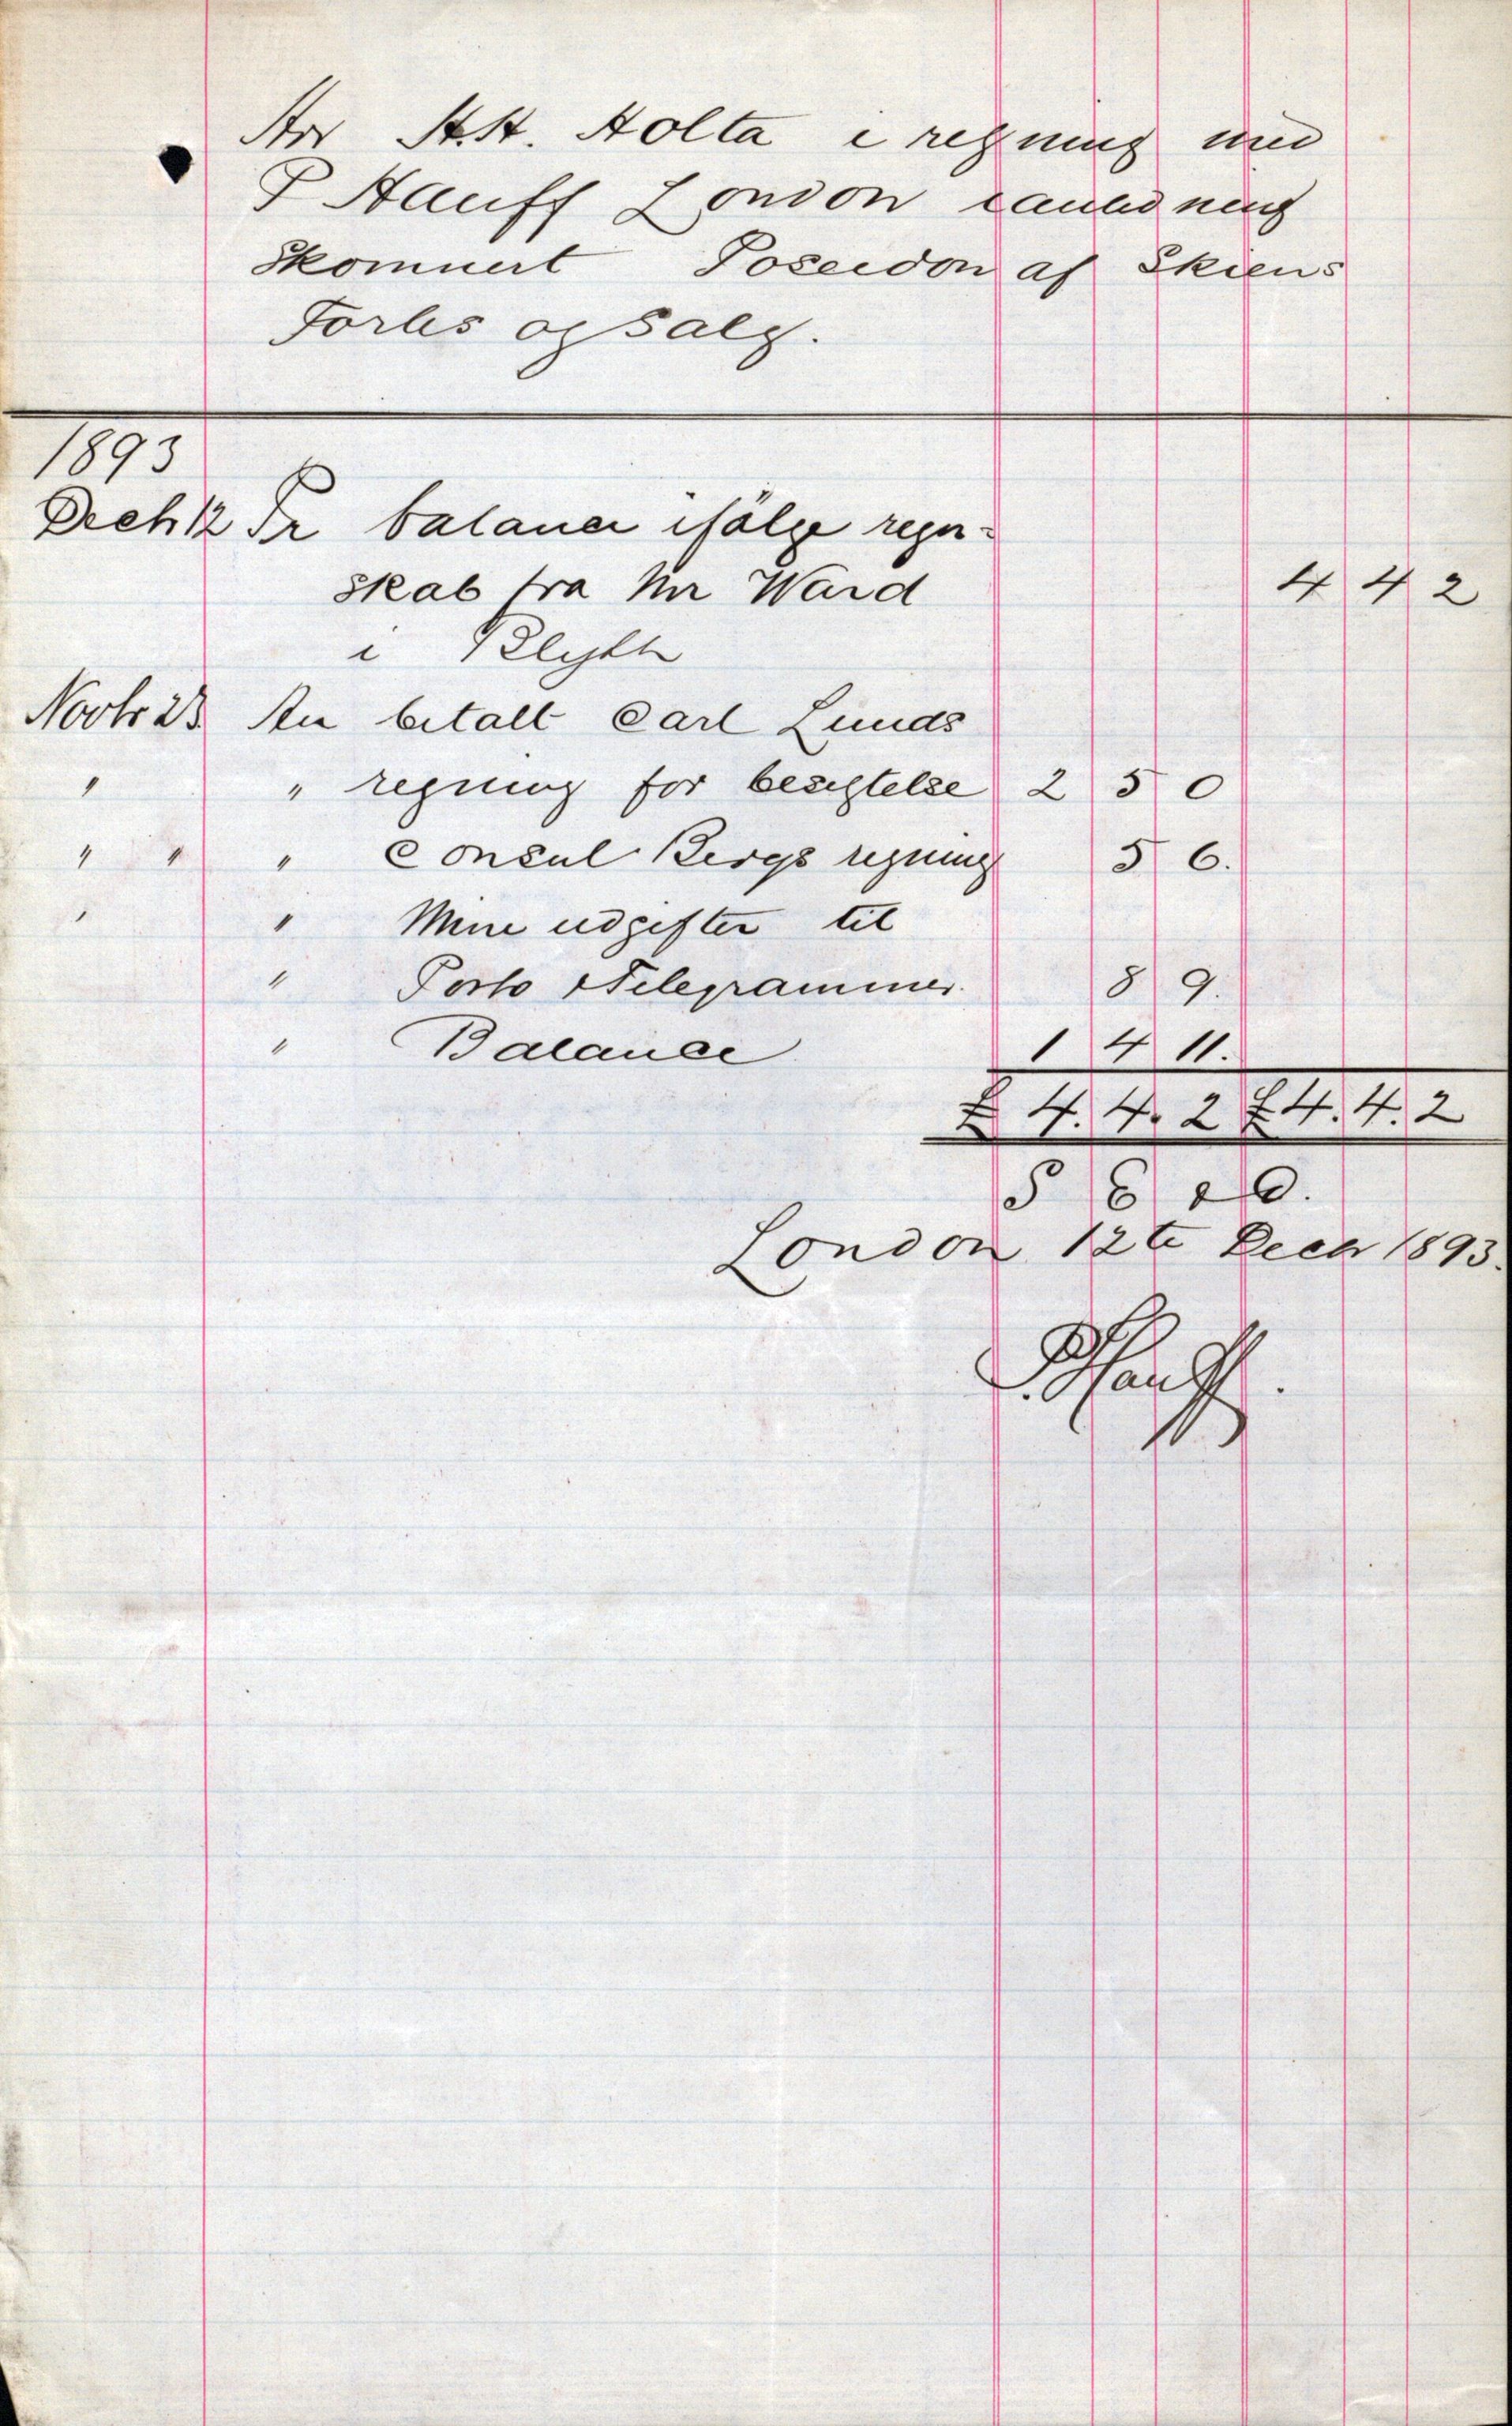 Hr H.H. Holta i regning med
P Hauff London i anledning
Skonnert Poseidon af Skiens
Forlis og Salg.
1893
Decb 12 Pr balance ifölge regn-
skab fra Mr Ward 4 4 2
i Blyth
Novbr 23 An betalt Carl Lunds
" " regning for besigtelse 2 5 0
" " " Consul Bergs regning 5 6.
" " Mine udgifter til
" Porto & Telegrammer. 8 9.
" Balance 1 4 11.
£ 4. 4. 2 £ 4. 4. 2
S E & O.
London 12te Decbr 1893.
P. Hauff.